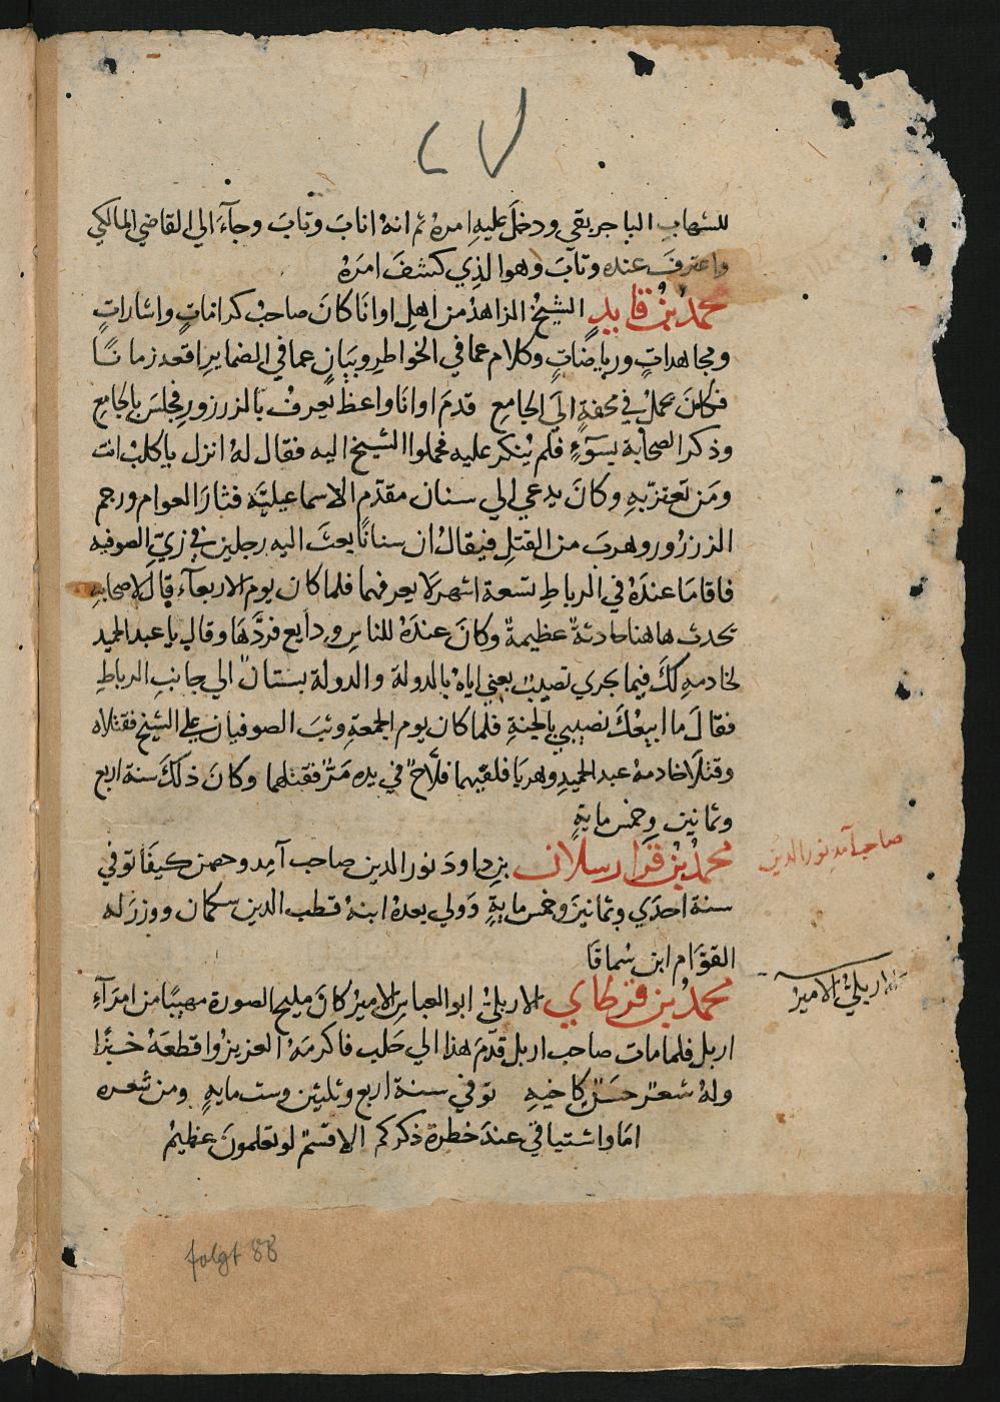 ٢٧
للشهاب الباجريقي ودخلَ عليهِ امرهُ ثم انهُ انابَ وتابَ وجآءَ الي القاضي المالكي
واعترفَ عنده وتابَ وهو الذِي كشفَ امرَهُ
محمدُ بنُ قايدٍ الشيخُ الزاهدُ من اهلِ اوانَا كانَ صاحبُ كراماتٍ واشاراتٍ
ومجاهداتٍ ورياضاتٍ وكلام عما في الخواطرِ وبيَانٍ عما في الضمايرِ اقعد زمانًا
فكانَ يحملُ في محفةٍ اليَ الجامعِ قدمَ اوانَا واعظ يُعرفُ بالزرزورِ فجلسَ بالجامعِ
وذكر الصحابة بسوَءٍ فلم يُنكر عليه فحملوا الشيخ اليه فقال لهُ انزل ياكلبُ انت
ومَن تعتز بهِ وكانَ يدعي الي سنان مقدّم الاسماعيليّة فثارَ العوام ورجم
الزرزُور وهربَ من القتلِ فيقالُ ان سنانًا بعثَ اليه رجلين في زيّ الصوفيه
فاقامَا عندَهُ في الرباطِ تسعة اشهرٍ لا يعرفهما فلما كان يوم الاربعآء قالَ لاصحابهِ
تحدث هاهنا حادثةٌ عظيمةٌ وكانَ عندَهُ للناسِ ودايع فردَّهَا وقال يا عبد الحميد
لخادمهِ لكَ فيما يجري نصيبُ بعني اياهُ بالدولة والدولة بستانٌ الي جانبِ الرباطِ
فقالَ ما ابيعُكَ نصيبي بالجنةِ فلما كان يوم الجمعةِ وثبَ الصوفيان علي الشيخ فقتلاه
وقتلَا خادمهُ عبد الحميدِ وهربَا فلقيهما فلّاحٌ في يده مَرٌّ فقتلهما وكانَ ذلكَ سنة اربع
وثمانين وخمس مايةٍ
محمدُ بنُ قرَا ارسلان بن داودَ نور الدين صاحب آمِد وحصن كيفَا توفي
سنة احدَي وثمانينَ وخمس مايةٍ وَولي بعدهُ ابنهُ قطب الدين سكمان ووزرَ له
القوَام ابن سُماقَا
صاحب آمد نور الدين
محمدُ بن قرطاي الاربليُّ ابو العباسِ الاميرُ كانَ مليح الصورة مهيبًا من امرَآءِ
الاربليُّ الاميرُ
اربل فلما مات صاحب اربل قدّمَ هذا الي حلب فاكرمَهُ العزيزُ واقطعَهُ خبزًا
ولهُ شعرٌ حسَنٌ كاخيهِ توفي سنة اربع وثلثين وست مايةٍ ومن شعره
امَا واشتياقي عندَ خطرة ذكركم الا قسمٌ لو تعلمونَ عظيمُ
folgt 88